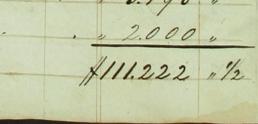 " 2.000 "
$111.222 " 1/2